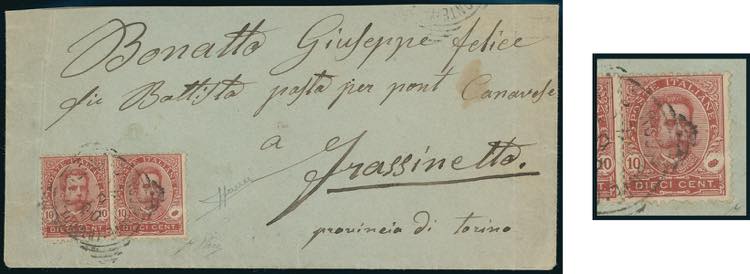 Bonatto Giuseppe felice
fu Battista posta per pont Canavese
a
Frassinetto.
provincia di Torino
POSTE ITALIANE
10 10
DIECI CENT.
POSTE ITALIANE
10
DIECI CENT.
POSTE ITALIANE
10
DIECI CENT.